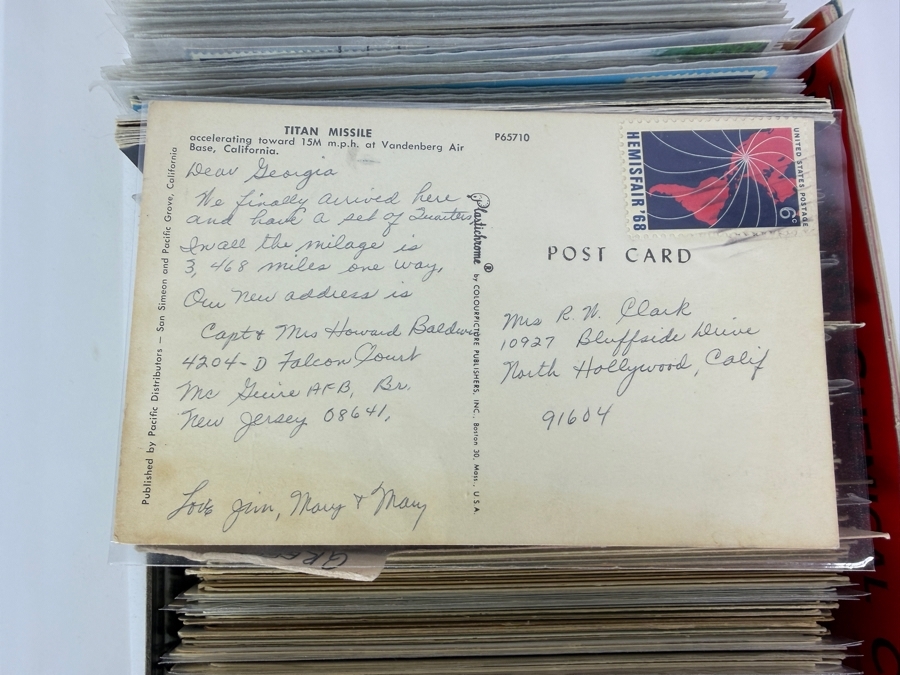 TITAN MISSILE
accelerating toward 15M m.p.h. at Vandenberg Air
Base, California.
P65710
Dear Georgia
We finally arrived here
and have a set of Quarters,
In all the milage is
3,468 miles one way,
Our new address is
Capt & Mrs Howard Baldwin
4204-D Falcon Court
Mc Guire AFB, Br.
New Jersey 08641,
Love Jim, Mary & Mary
Published by Pacific Distributors — San Simeon and Pacific Grove, California
Plastichrome ® by COLOURPICTURE PUBLISHERS, INC. Boston 30, Mass., U.S.A.
HEMISFAIR '68
UNITED STATES POSTAGE
6c
POST CARD
Mrs R. W. Clark
10927 Bluffside Drive
North Hollywood, Calif
91604